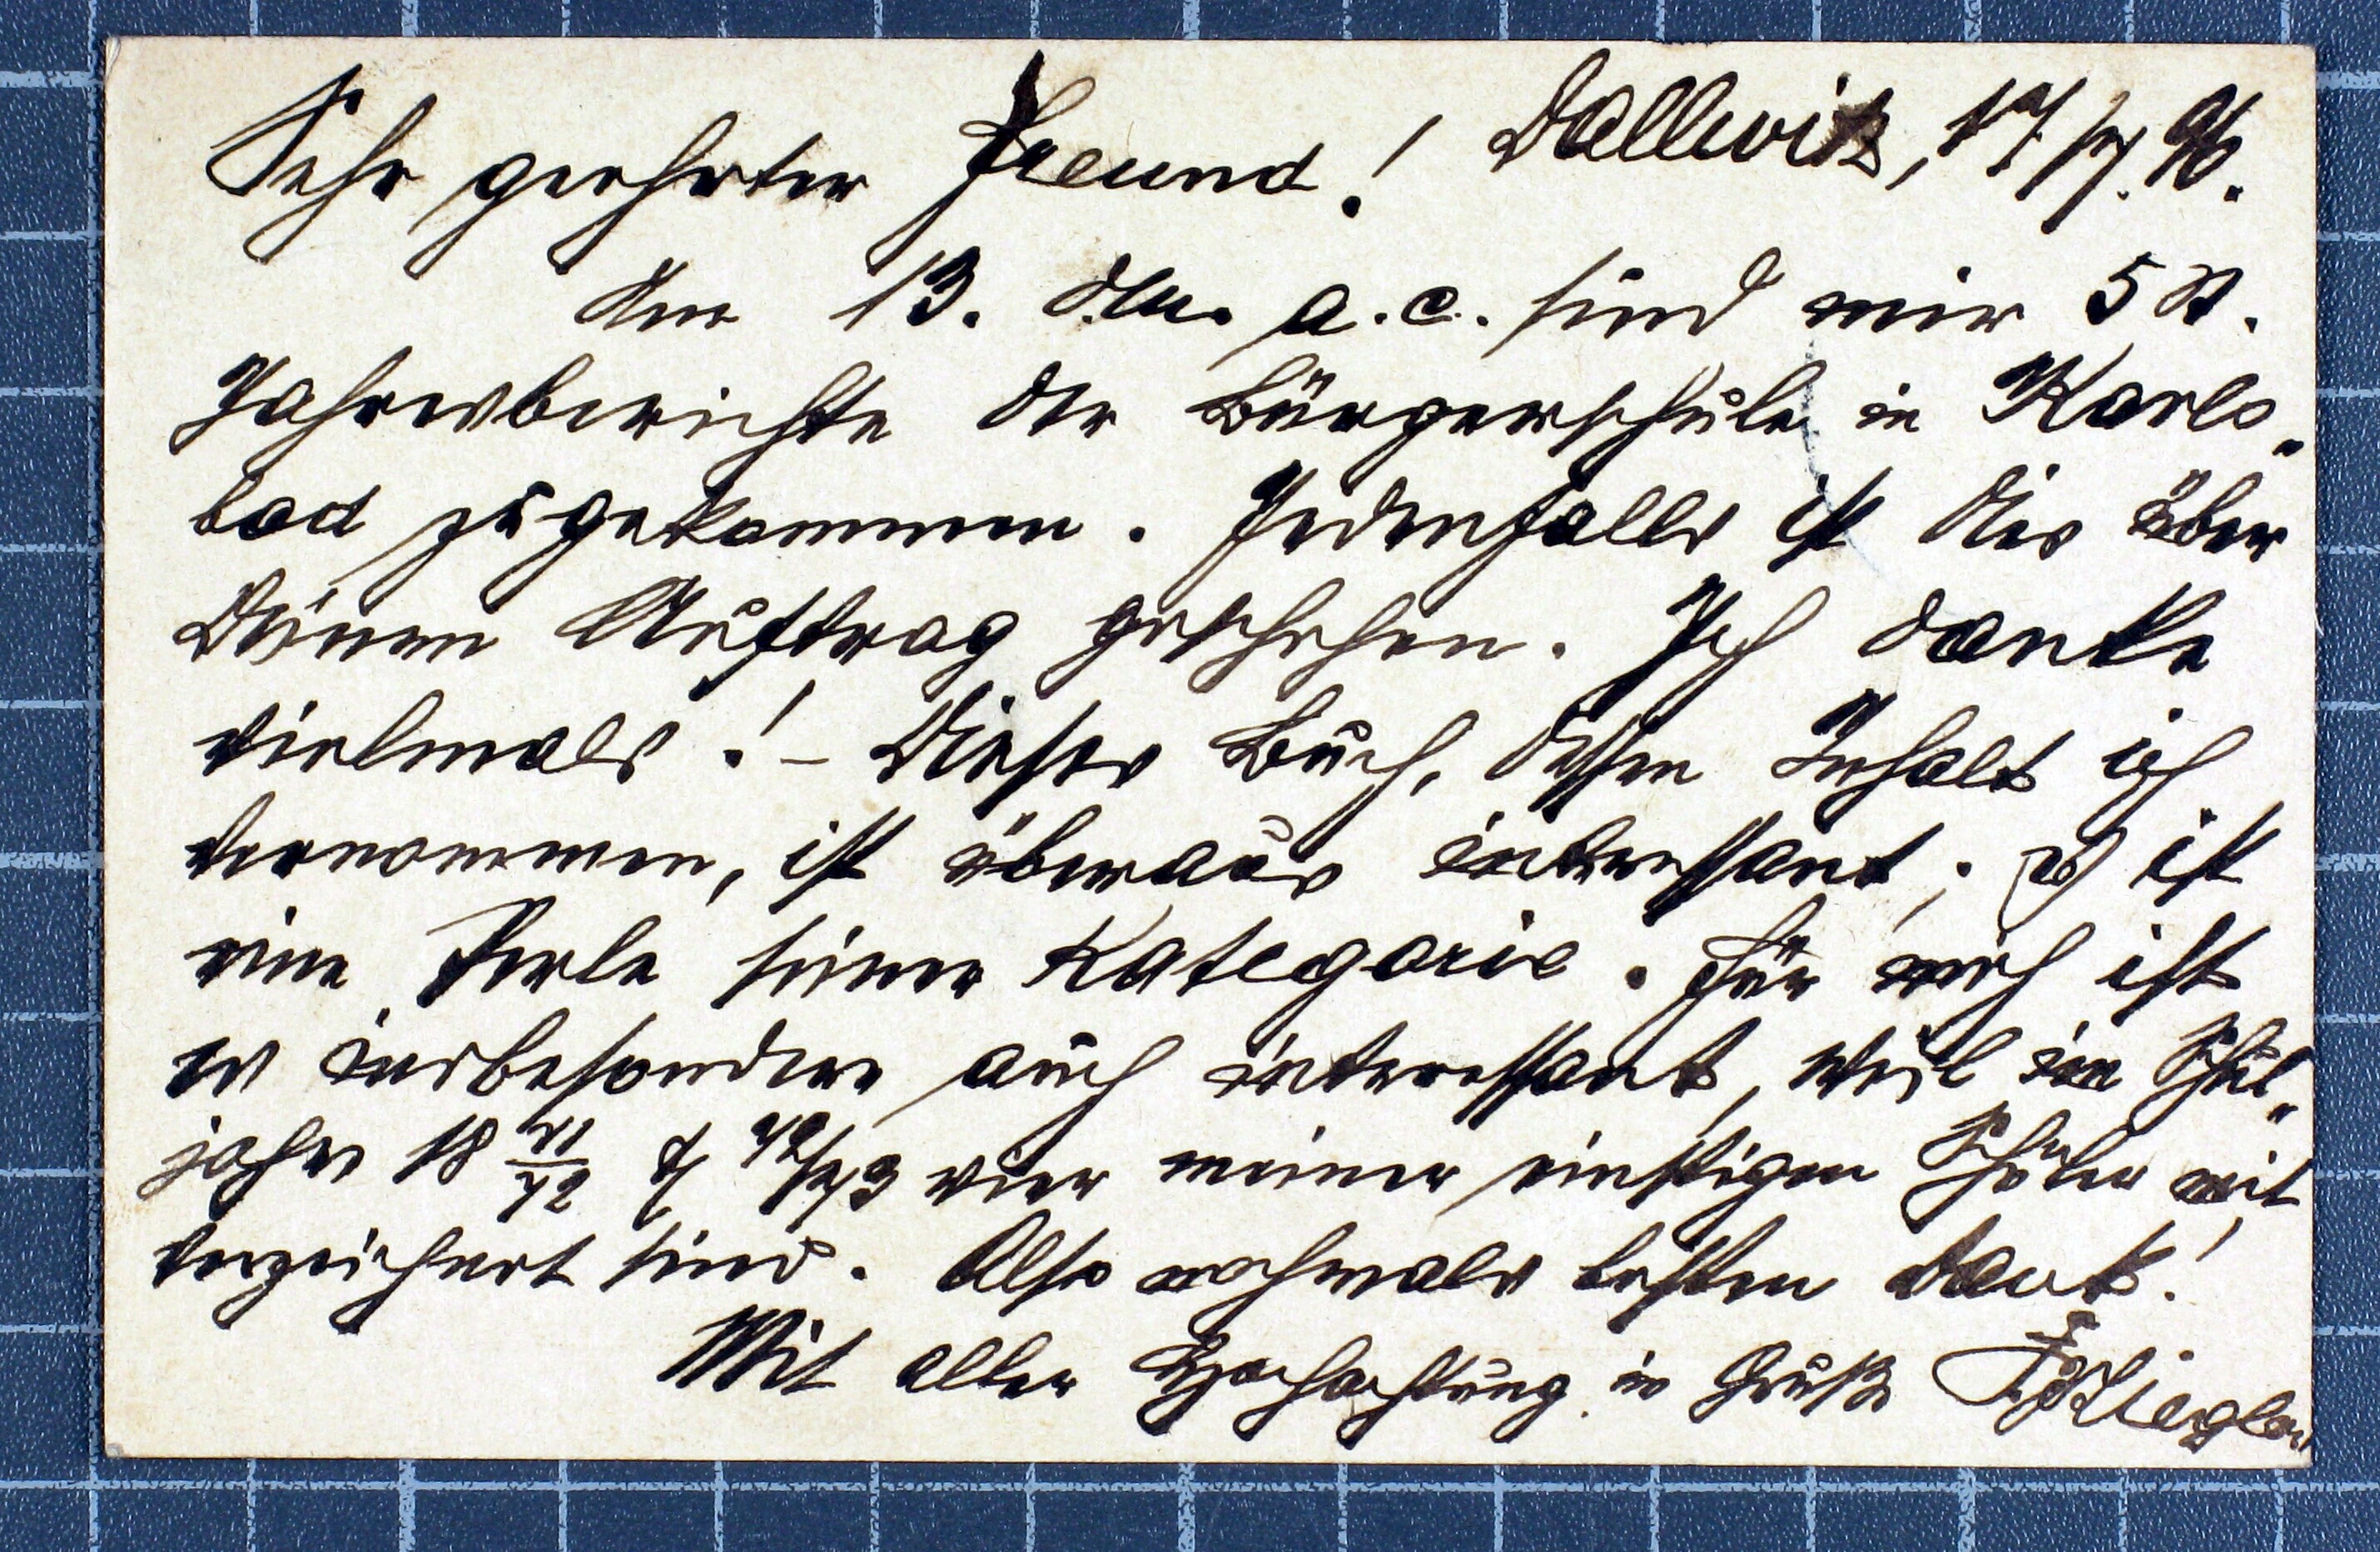 Sehr geehrter Freund! Dallwitz, 17/7. 96.
Am 13. d. M. a. c. sind mir 5 St.
Jahresberichte der Bürgerschule in Karls„
bad zugekommen. Jedenfalls ist dies über
Deinen Auftrag geschehen. Ich danke
vielmals! – Dieses Buch, dessen Inhalt ich
vernommen, ist überaus interessant; es ist
eine Perle seiner Kategorie. Für mich ist
es insbesondere auch interessant, weil im Schul„
jahre 18 71/72 & 72/73 vier meiner einstigen Schüler mit
verzeichnet sind. Also nochmals besten Dank!
Mit aller Hochachtung u Gruß